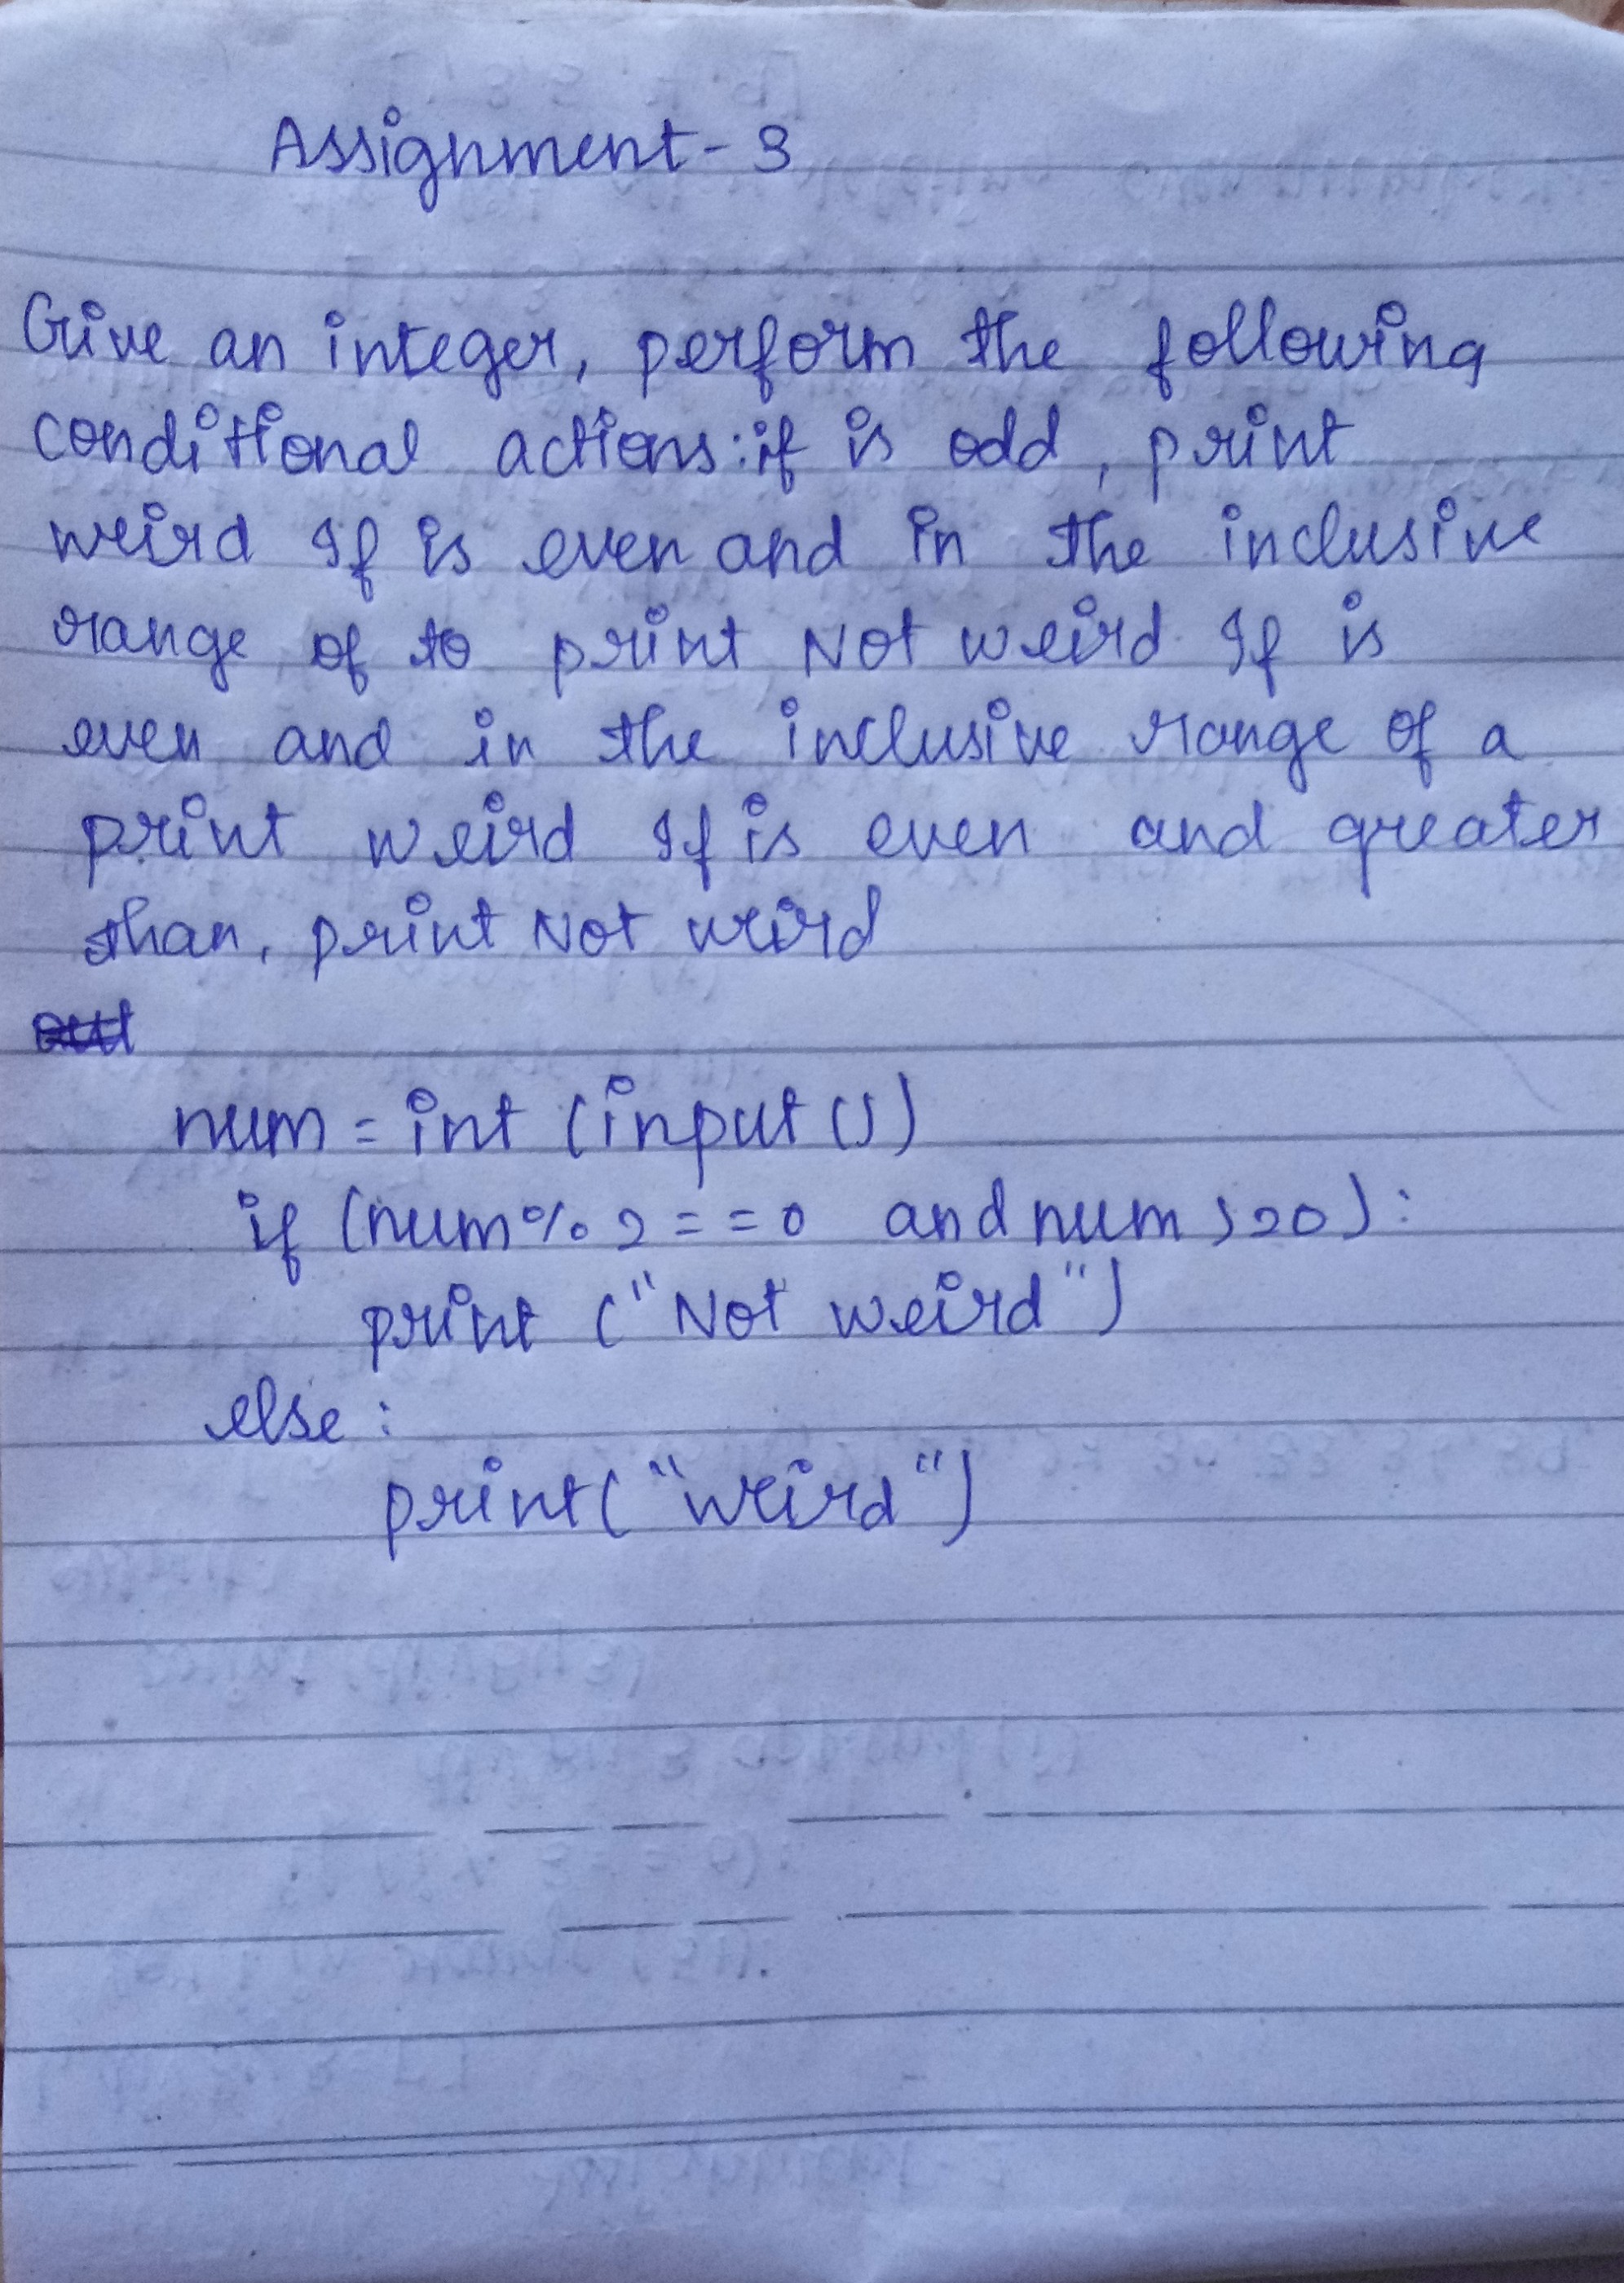 Assignment - 3
Give an integer, perform the following
conditional actions: if is odd, print
weird If is even and in the inclusive
range of to print Not weird. If is
even and in the inclusive range of a
print weird If is even and greater
than, print Not weird
num = int (input ())
if (num % 2 = = 0 and num > 20) :
print ("Not weird")
else :
print ("weird")